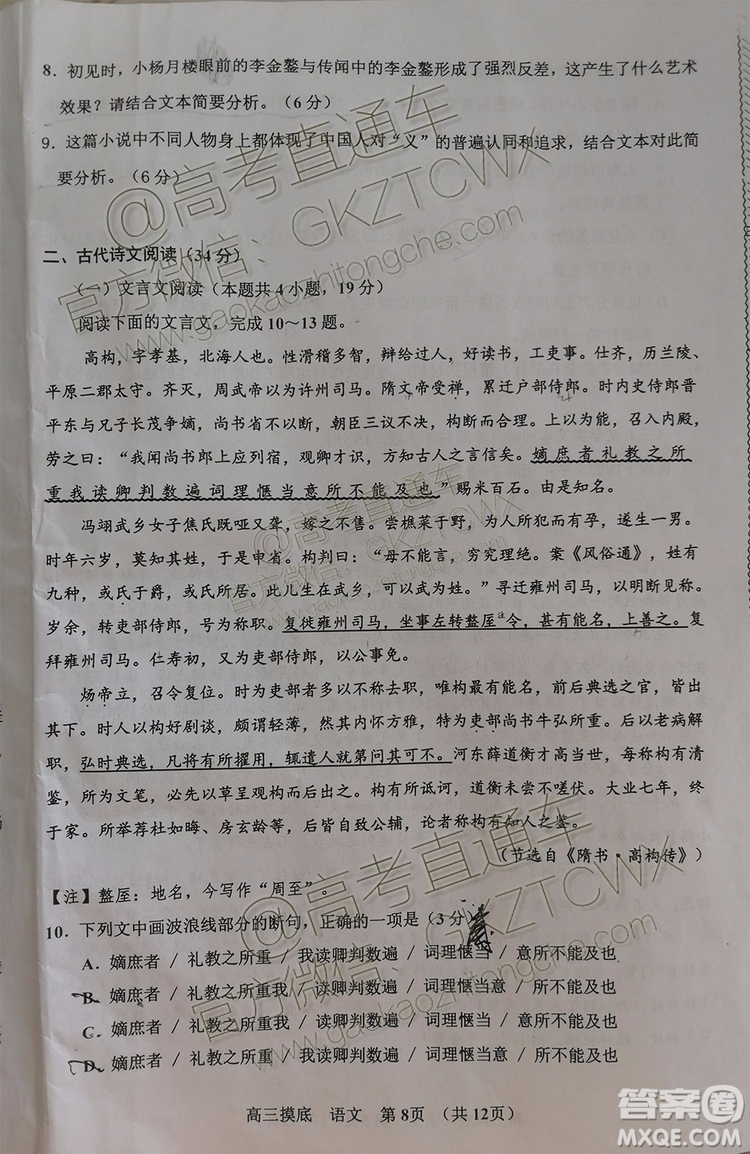 8．初见时，小杨月楼眼前的李金鏊与传闻中的李金鏊形成了强烈反差，这产生了什么艺术
效果？请结合文本简要分析。（6 分）
9．这篇小说中不同人物身上都体现了中国人对“义”的普遍认同和追求，结合文本对此简
要分析。（6 分）
二、古代诗文阅读（34 分）
（一）文言文阅读（本题共 4 小题，19 分）
阅读下面的文言文，完成 10～13 题。
高构，字孝基，北海人也。性滑稽多智，辩给过人，好读书，工吏事。仕齐，历兰陵、
平原二郡太守。齐灭，周武帝以为许州司马。隋文帝受禅，累迁户部侍郎。时内史侍郎晋
平东与兄子长茂争嫡，尚书省不以断，朝臣三议不决，构断而合理。上以为能，召入内殿，
劳之曰：“我闻尚书郎上应列宿，观卿才识，方知古人之言信矣。嫡庶者礼教之所
重我读卿判数遍词理惬当意所不能及也”赐米百石。由是知名。
冯翊武乡女子焦氏既哑又聋，嫁之不售。尝樵菜于野，为人所犯而有孕，遂生一男。
时年六岁，莫知其姓，于是申省。构判曰：“母不能言，穷究理绝。案《风俗通》，姓有
九种，或氏于爵，或氏所居。此儿生在武乡，可以武为姓。”寻迁雍州司马，以明断见称。
岁余，转吏部侍郎，号为称职。复徙雍州司马，坐事左转盩厔注令，甚有能名，上善之。复
拜雍州司马。仁寿初，又为吏部侍郎，以公事免。
炀帝立，召令复位。时为吏部者多以不称去职，唯构最有能名，前后典选之官，皆出
其下。时人以构好剧谈，颇谓轻薄，然其内怀方雅，特为吏部尚书牛弘所重。后以老病解
职，弘时典选，凡将有所擢用，辄遣人就第问其可不。河东薛道衡才高当世，每称构有清
鉴，所为文笔，必先以草呈观构而后出之。构有所诋诃，道衡未尝不嗟伏。大业七年，终
于家。所举荐杜如晦、房玄龄等，后皆自致公辅，论者称构有知人之鉴。
（节选自《隋书·高构传》）
【注】盩厔：地名，今写作“周至”。
10．下列文中画波浪线部分的断句，正确的一项是（3 分）
A．嫡庶者 / 礼教之所重 / 我读卿判数遍 / 词理惬当 / 意所不能及也
B．嫡庶者 / 礼教之所重我 / 读卿判数遍 / 词理惬当 / 意所不能及也
C．嫡庶者 / 礼教之所重我 / 读卿判数遍 / 词理惬当意 / 所不能及也
D．嫡庶者 / 礼教之所重 / 我读卿判数遍 / 词理惬当意 / 所不能及也
高三摸底 语文 第 8页 （共 12页）
@高考直通车
官方微信：GKZTCWX
www.gaokaozhitongche.com
@高考直通车
官方微信：GKZTCWX
www.gaokaozhitongche.com
@高考直通车
官方微信：GKZTCWX
www.gaokaozhitongche.com
答案圈
MXQE.COM